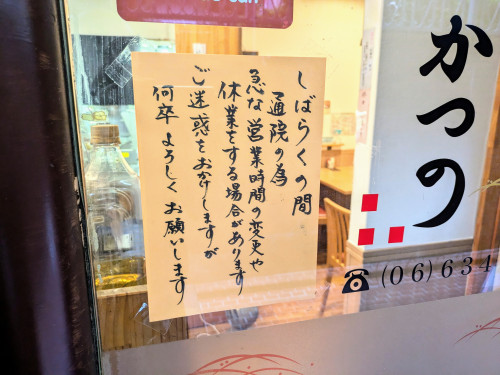 かつの
☎(06)634
しばらくの間
通院の為
急な営業時間の変更や
休業をする場合があります
ご迷惑をおかけしますが
何卒よろしくお願いします